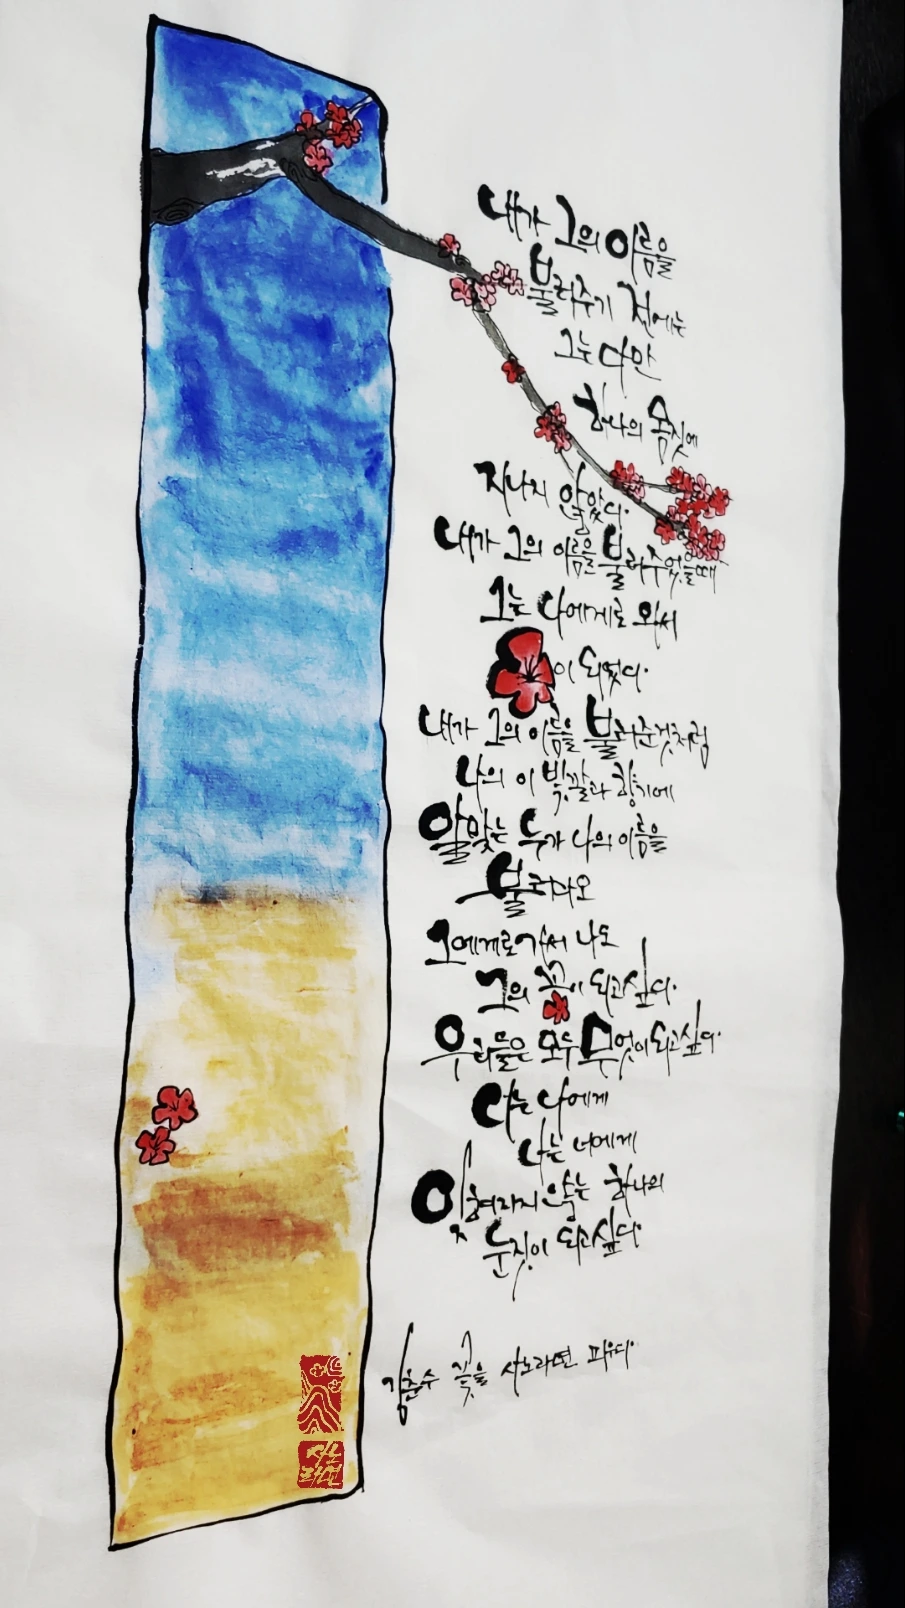 내가 그의 이름을
불러주기 전에는
그는 다만
하나의 몸짓에
지나지 않았다.
내가 그의 이름을 불러주었을때
그는 나에게로 와서
이 되었다.
내가 그의 이름을 불러준것처럼
나의 이 빛깔과 향기에
알맞는 누가 나의 이름을
불러다오
그에게로가서 나도
그의 꽃이 되고싶다.
우리들은 모두 무엇이되고싶다.
너는 나에게
나는 너에게
잊혀지지 않는 하나의
눈짓이 되고싶다.
김춘수 꽃을 사노라면 피우다.
사노라면